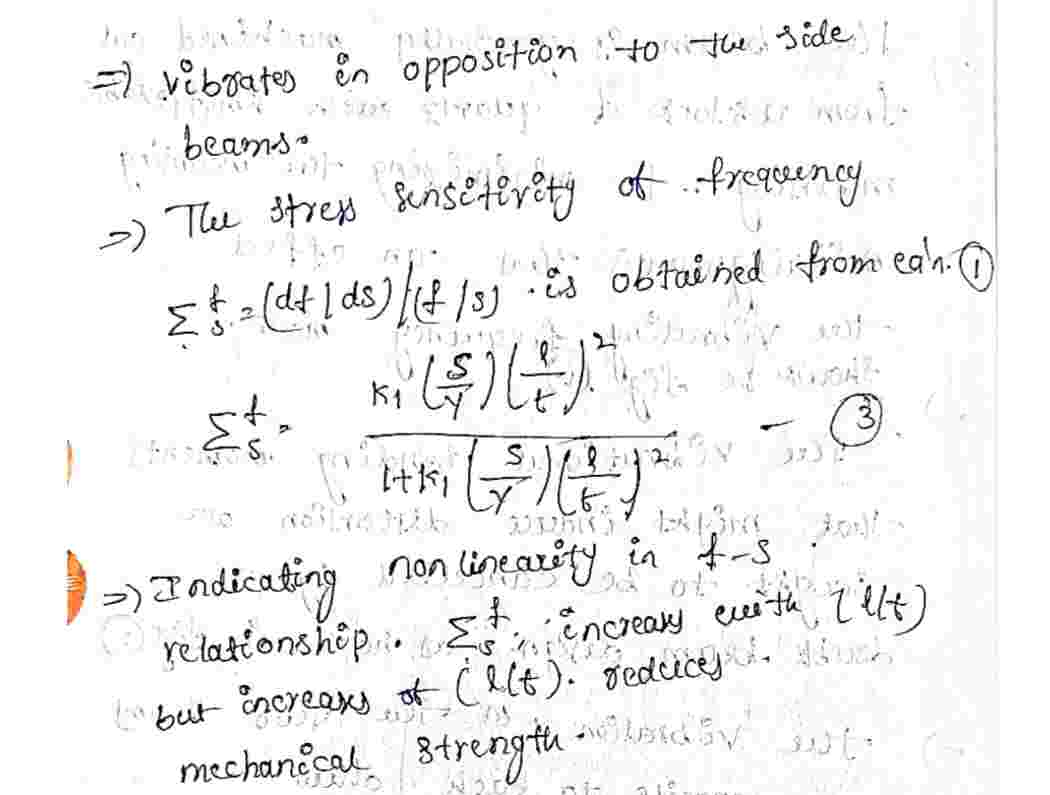 =) vibrates in opposition to the side
beams.
=) The stress sensitivity of frequency
Σ_s^f = (df/ds)/(f/s) is obtained from eqn. ①
Σ_s^f = K₁ (S/Y) (l/t)² / 1+K₁ (S/Y) (l/t)² - ③
=) Indicating non linearity in f-s
relationship. Σ_s^f increases with (l/t)
but increases of (l/t). reduces
mechanical strength.